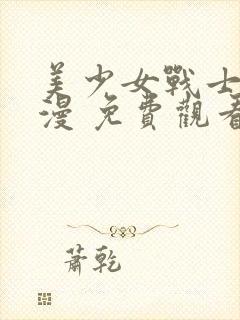 美少女戰士
漫 免費觀看
蕭乾